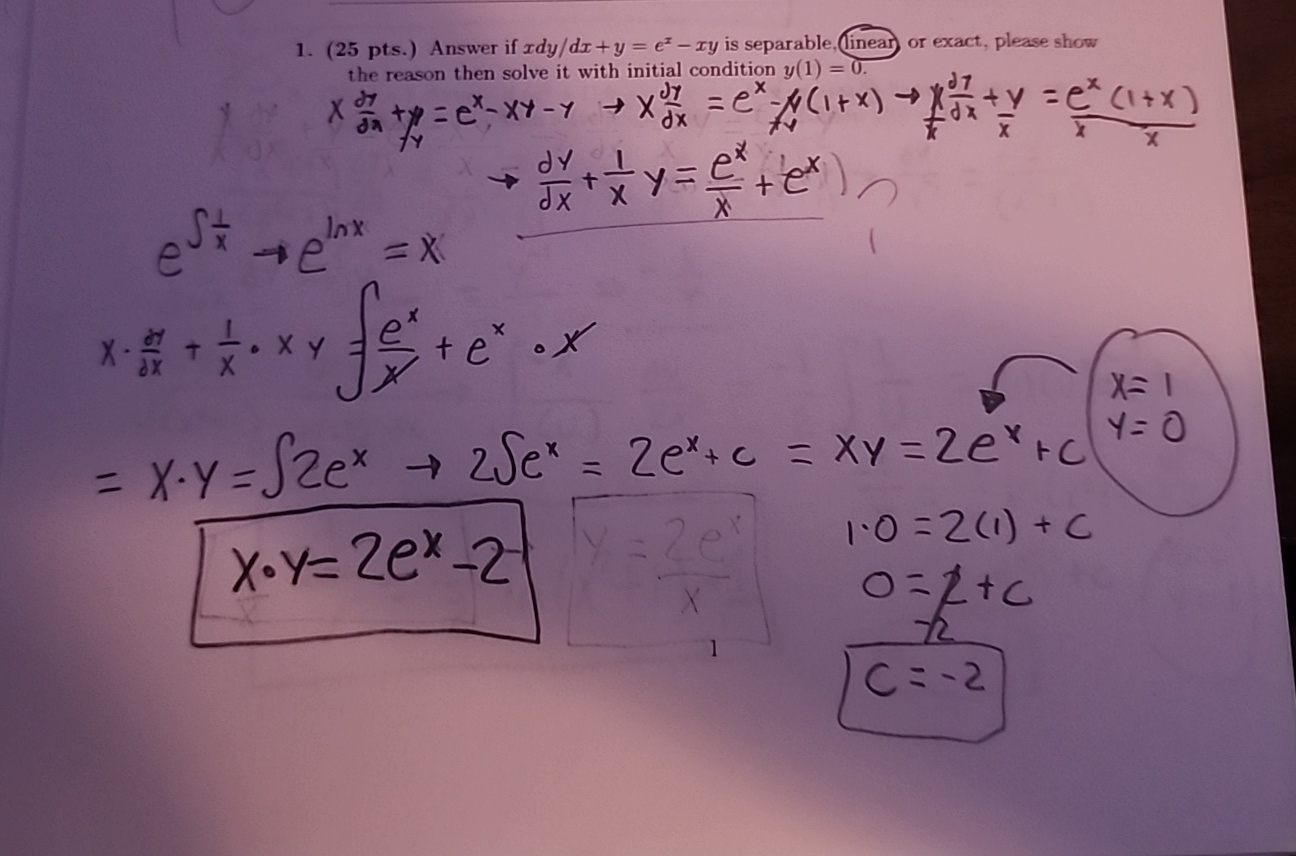 1. (25 pts.) Answer if xdy/dx + y = e^x − xy is separable, linear or exact, please show
the reason then solve it with initial condition y(1) = 0.
x dy/dx + y = e^x - xy - y → x dy/dx = e^x - y(1+x) → x dy/dx + y = e^x (1+x)
-y -y x x x x
→ dy/dx + 1/x y = e^x/x + (e^x)
e^∫1/x → e^lnx = x
x · dy/dx + 1/x · x y = ∫ e^x/x + e^x · x
x = 1
y = 0
= x·y = ∫2e^x → 2∫e^x = 2e^x + c = xy = 2e^x + c
x·y = 2e^x - 2
y = 2e^x
x
1·0 = 2(1) + c
0 = 2 + c
-2
c = -2
1